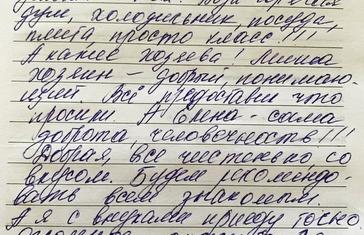 душ, холодильник, посуда,
плита просто класс!!!
А какие хозяева! Миша
хозяин - добрый, понимаю-
щий. Всё предоставил что
просили. А Елена - сама
доброта, человечность!!!
Добрая, все чистенько со
вкусом. Будем рекомендо-
вать всем знакомым.
А я с внуками приеду точно